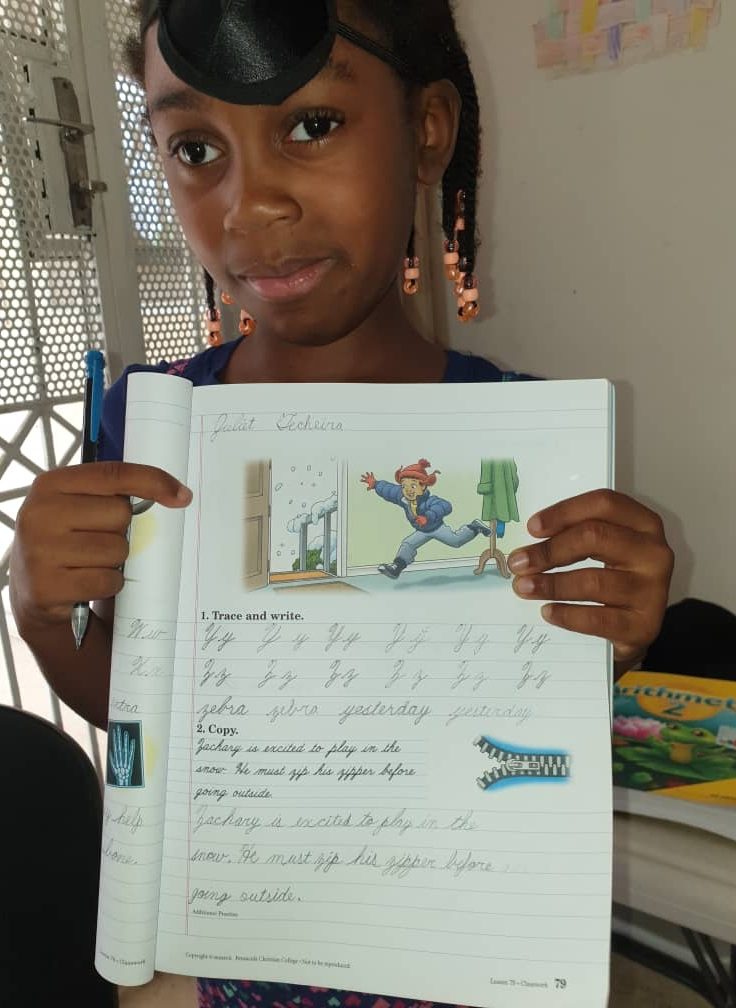 Juliet Techeira
1. Trace and write.
W w
Yy Yy Yy Yy Yy Yy
X x
Zz Zz Zz Zz Zz Zz
zebra zebra yesterday yesterday
2. Copy.
Zachary is excited to play in the
snow. He must zip his zipper before
going outside.
help
Zachary is excited to play in the
bone.
snow. He must zip his zipper before
going outside.
Additional Practice
Pensacola Christian College • Not to be reproduced.
Lesson 79 • Classwork 79
Classwork
2